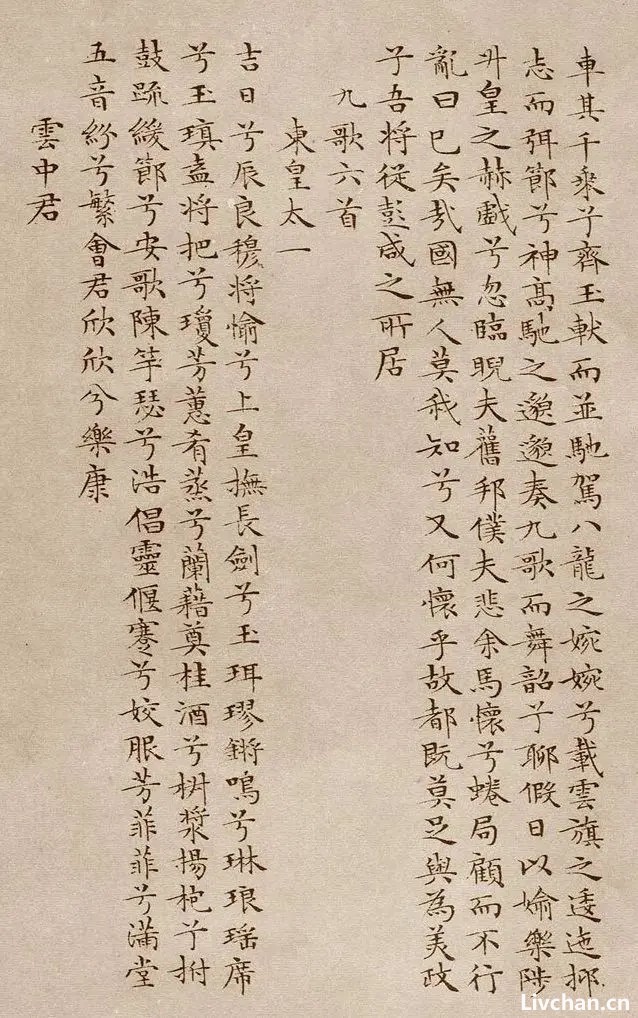 車其千乘兮齊玉軑而並馳駕八龍之婉婉兮載雲旗之逶迤抑
志而弭節兮神髙馳之邈邈奏九歌而舞韶兮聊假日以媮樂陟
升皇之赫戲兮忽臨睨夫舊邦僕夫悲余馬懷兮蜷局顧而不行
亂曰已矣哉國無人莫我知兮又何懷乎故都既莫足與為美政
兮吾将從彭咸之所居
九歌六首
東皇太一
吉日兮辰良穆将愉兮上皇撫長劍兮玉珥璆鏘鳴兮琳琅瑶席
兮玉瑱盍将把兮瓊芳蕙肴蒸兮蘭藉奠桂酒兮椒漿揚枹兮拊
鼓疏緩節兮安歌陳竽瑟兮浩倡靈偃蹇兮姣服芳菲菲兮滿堂
五音紛兮繁會君欣欣兮樂康
雲中君
Livchan.cn